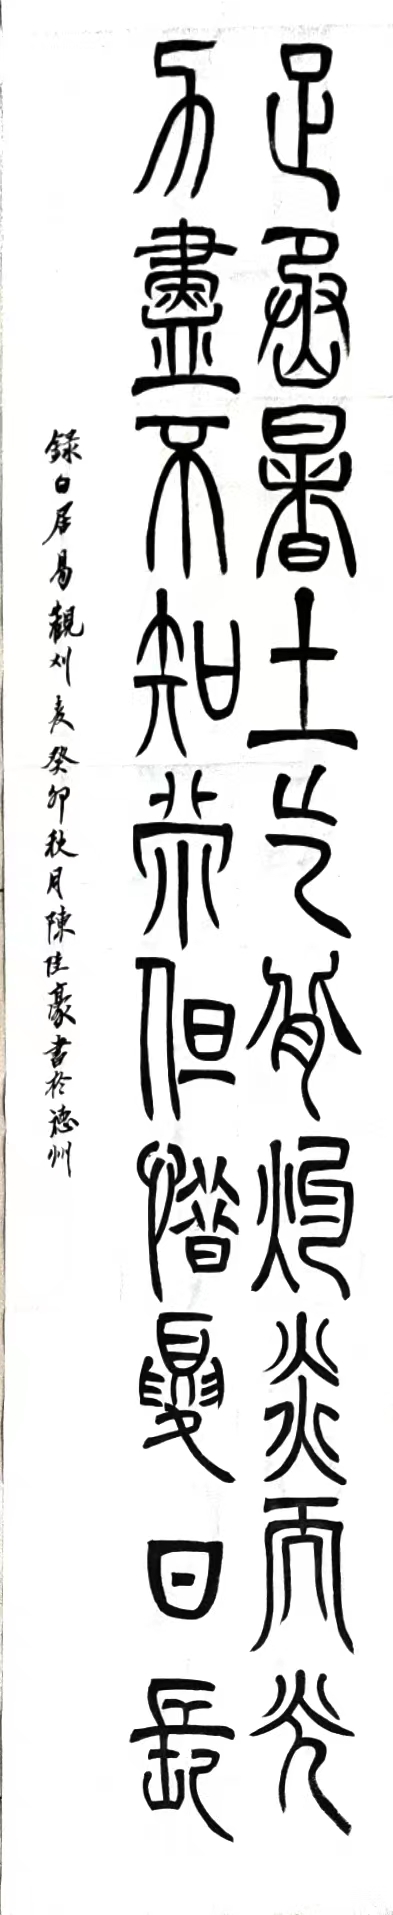 足蒸暑土气背灼炎天光
力盡不知熱但惜夏日長
錄白居易觀刈麦癸卯秋月陳佳豪書於德州